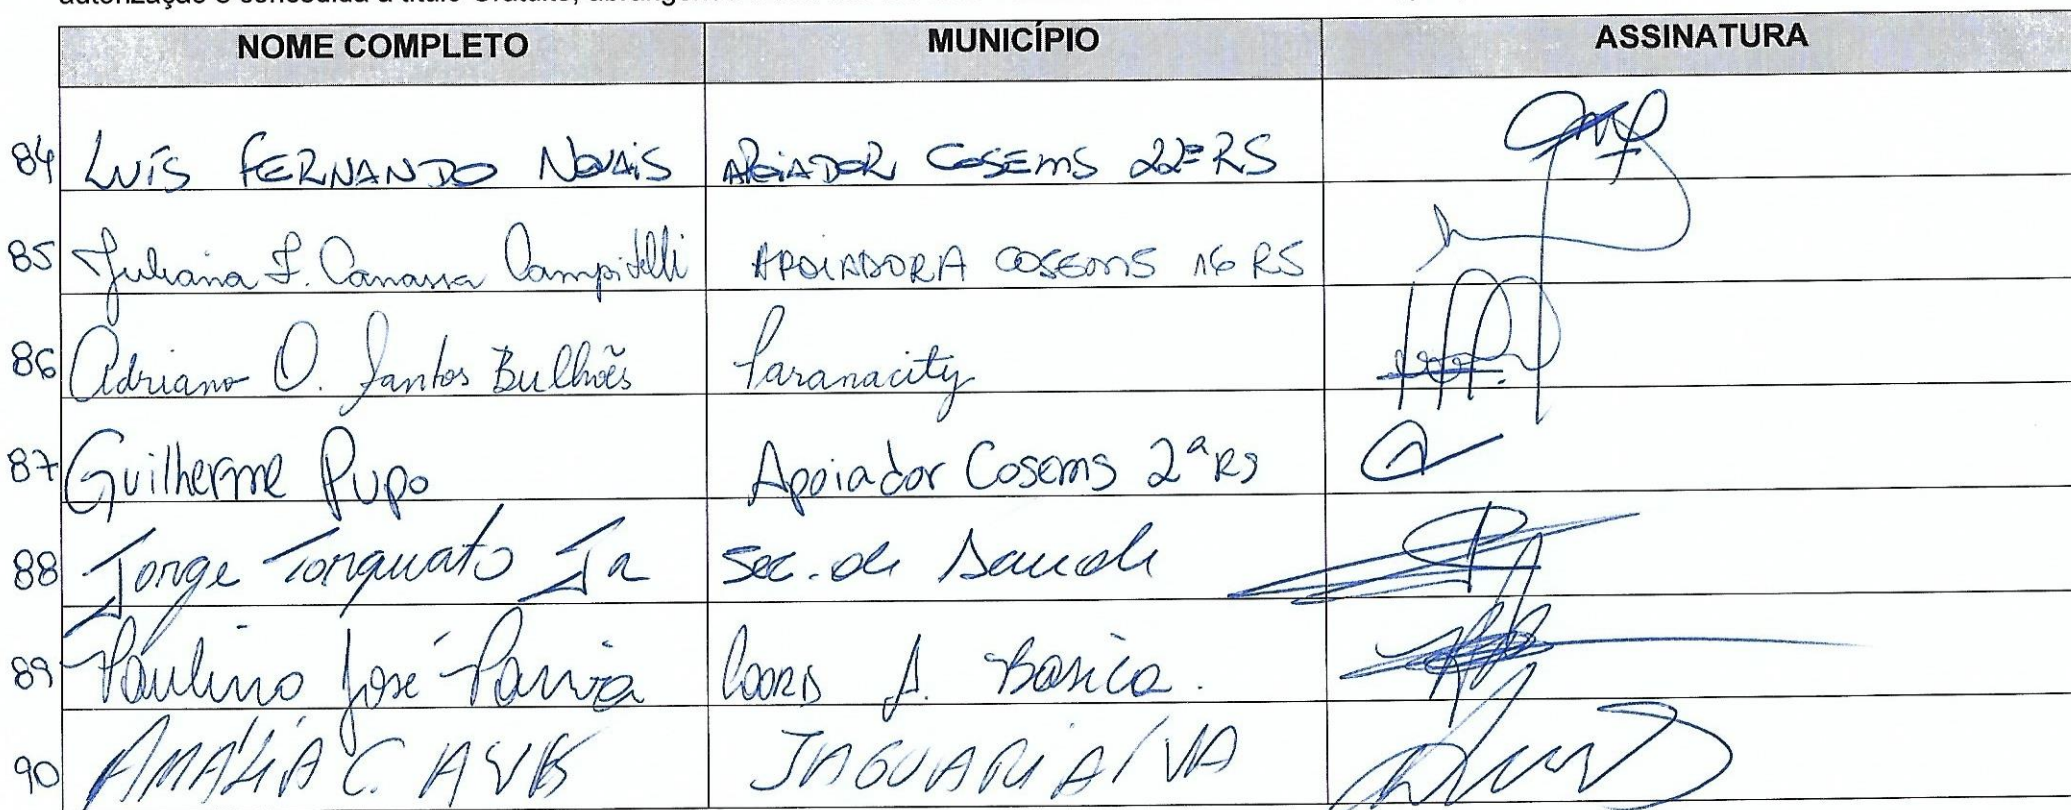 autorização é concedida a título Gratuito, abrangen
NOME COMPLETO MUNICÍPIO ASSINATURA
84 LUÍS FERNANDO NOVAIS APOIADOR COSEMS 22ª RS
85 Juliana F. Canassa Campitelli APOIADORA COSEMS 16 RS
86 Adriano O. Santos Bulhões Paranacity
87 Guilherme Pupo Apoiador Cosems 2ª RS
88 Jorge Torquato Jr Sec. de Saude
89 Paulino José Coord A. Basica.
90 AMÁLIA C. ALVES JAGUARIAÍVA